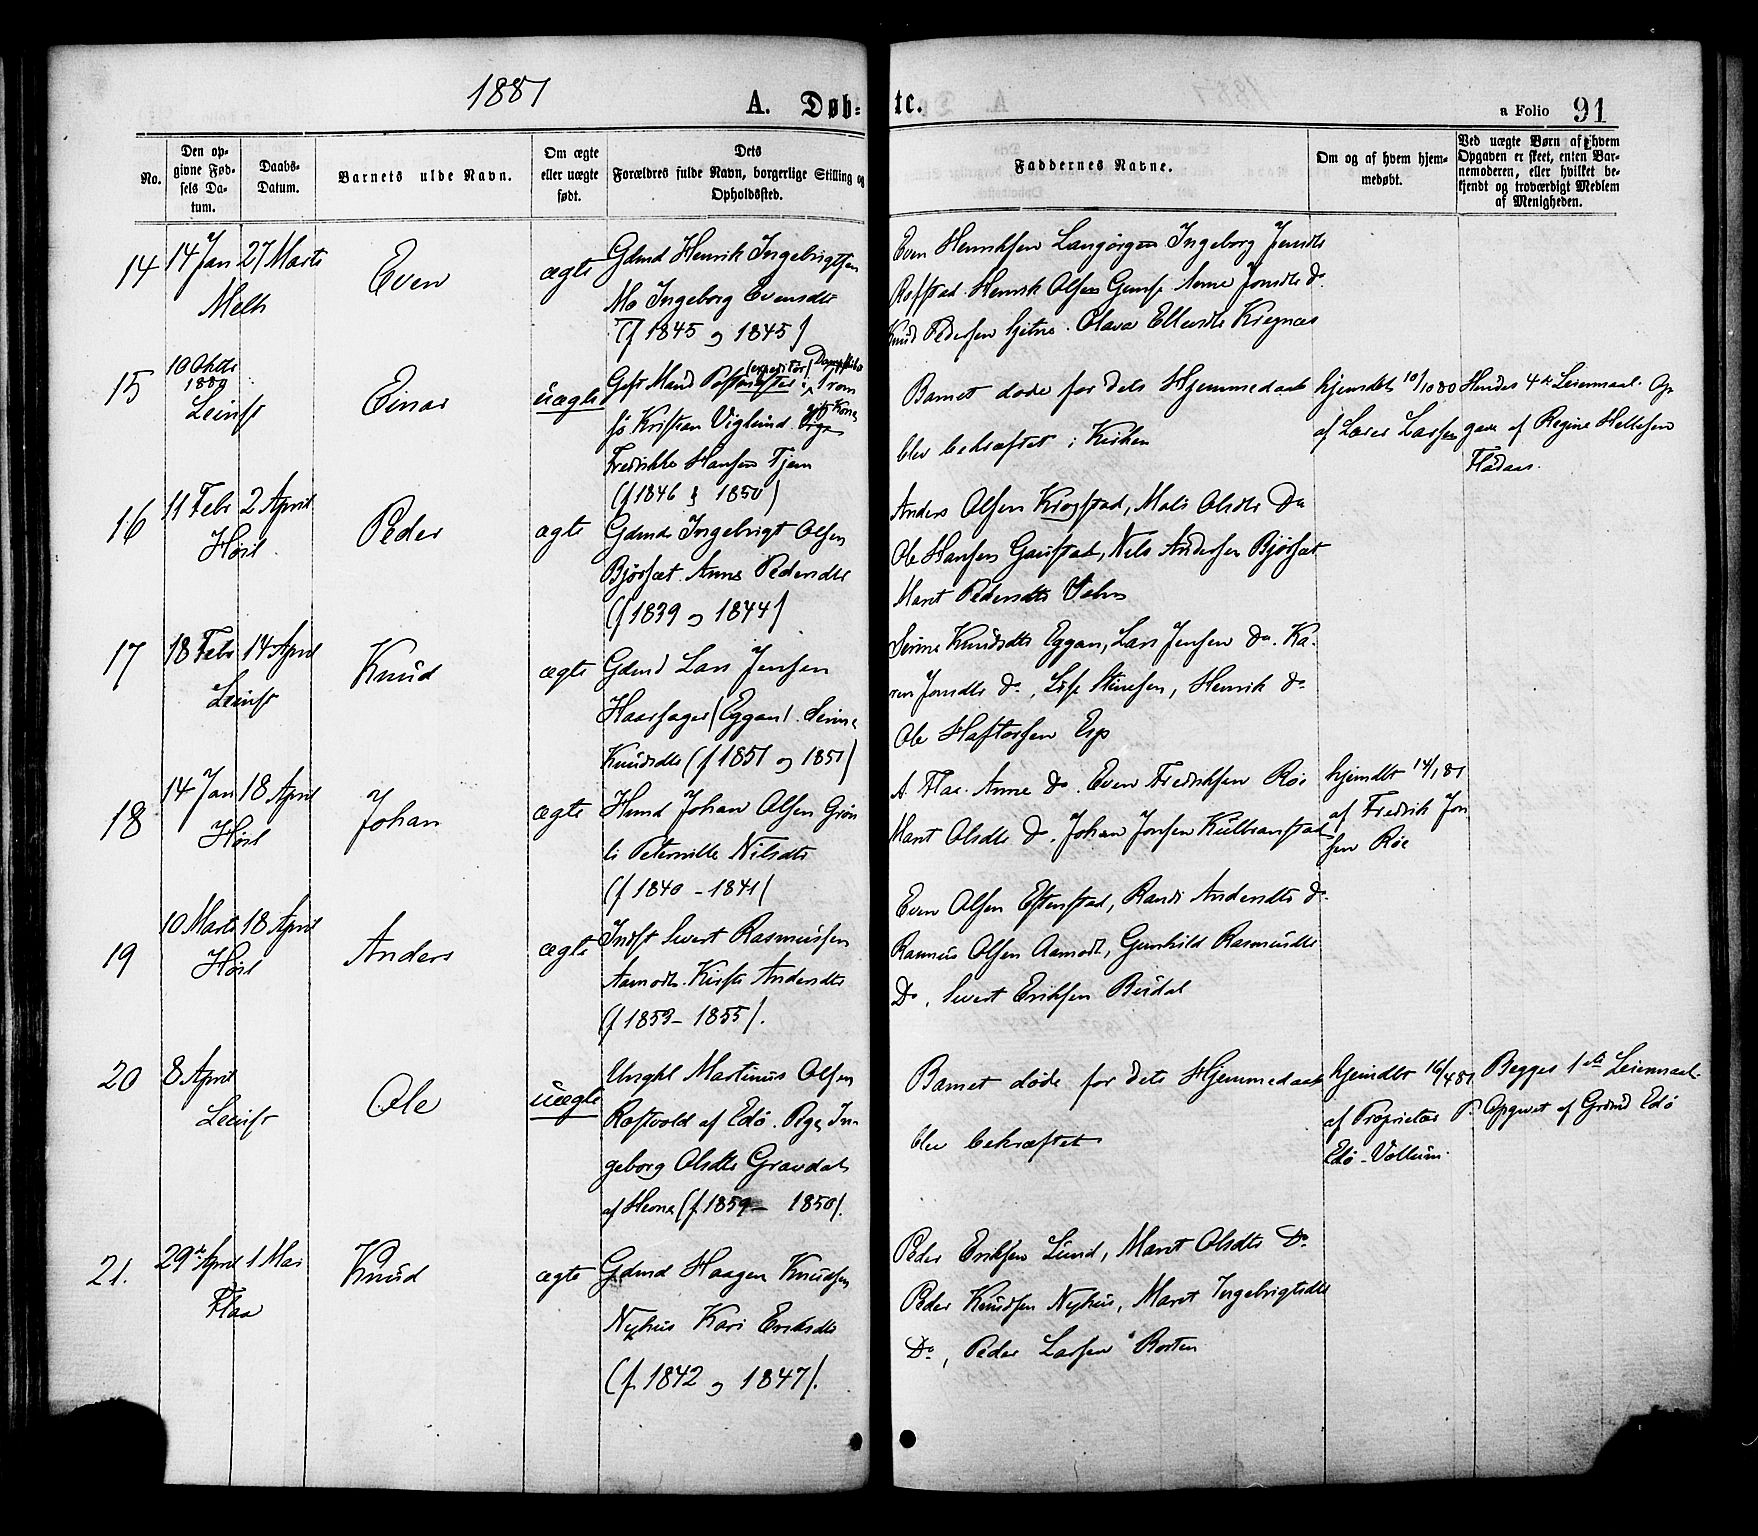 1881
A. Døb-
te.
a Folio 91
No.
Den op-
givne Fød-
sels Da-
tum.
Daabs-
Datum.
Barnets fulde Navn.
Om ægte
eller uægte
født.
Dets
Forældres fulde Navn, borgerlige Stilling og
Opholdssted.
Faddernes Navne.
Om og af hvem hjem-
medøbt.
Ved uægte Børn af hvem
Opgaven er skeet, enten Bar-
nemoderen, eller hvilket be-
kjendt og troværdigt Medlem
af Menigheden.
14
14 Jan
27 Marts
Melh
Even
ægte
Gdmd Henrik Ingebrigtsen
Mo Ingeborg Evensdtr
(f 1845 og 1845)
Even Henriksen Langørgen Ingeborg Jensdtr
Rofstad. Henrik Olsen Anne Jonsdtr Do
Knud Pedersen Gjetnes. Olava Ellevsdtr Kregnæs
15
10 Oktbr
1880
Leinst
Einar
uægte
Gift Mand Post Trom
sø Kristian Viglund.
Fredrikke Hansen Tjern
(f 1846 & 1850)
Barnet døde før dets Hjemmedaab
blev bekræftet i Kirken
hjemdøbt 10/10 80
af Lærer Larsen
Hendes 4de Leiermaal. Op
gave af Regine Hellesen
Flaaen.
16
11 Febr
2 April
Høil
Peder
ægte
Gdmd Ingebrigt Olsen
Bjørsæt. Anne Pedersdtr
(f 1839 og 1844)
Anders Olsen Krogstad, Mali Olsdtr Do
Ole Hansen Gaustad, Nels Andersen Bjørsæt
Marit Pedersdtr
17
18 Febr
14 April
Leinst
Knud
ægte
Gdmd Lars Jensen
Haarsager (Eggan). Serine
Knudsdtr (f 1851 og 1851)
Serine Knudsdtr Eggan, Lars Jensen Do. Ka-
ren Jonsdtr Do, Henrik Do
Ole Haftorsen Esp
18
14 Jan
18 April
Høil
Johan
ægte
Hmd Johan Olsen Grøn
li Peternille Nilsdtr
(f 1840 - 1841)
A. Flaa. Anne Do. Even Fredriksen Røe
Marit Olsdtr Do. Johan Jonsen Kulbranstad
hjemdbt 14/1 81
af Fredrik Jon
sen Røe
19
10 Marts
18 April
Høil
Anders
ægte
Indst Sivert Rasmussen
Aamodt. Kirsti Andersdtr
(f 1853 - 1855).
Even Olsen Estenstad, Randi Andersdtr Do
Rasmus Olsen Aamodt, Gunhild Rasmusdtr
Do, Sivert Eriksen Buedal
20
8 April
Leinst
Ole
uægte
Ungkl Martinus Olsen
Rostvold af Edø. Pige In-
geborg Olsdtr Gravdal
af Hevne (f 1859 - 1850).
Barnet døde før dets Hjemmedaab
blev bekræftet
hjemdbt 16/4 81
af Proprietær P.
Edø - Vollum.
Begges 1ste Leiermaal.
Opgivet af Grdmd Edø
21.
29de April
1 Mai
Flaa
Knud
ægte
Gdmd Haagen Knudsen
Nyhus Kari Eriksdtr
(f. 1842 og 1847).
Peder Eriksen Lund, Marit Olsdtr Do
Peder Knudsen Nyhus, Marit Ingebrigtsdtr
Do, Peder Larsen Rosten